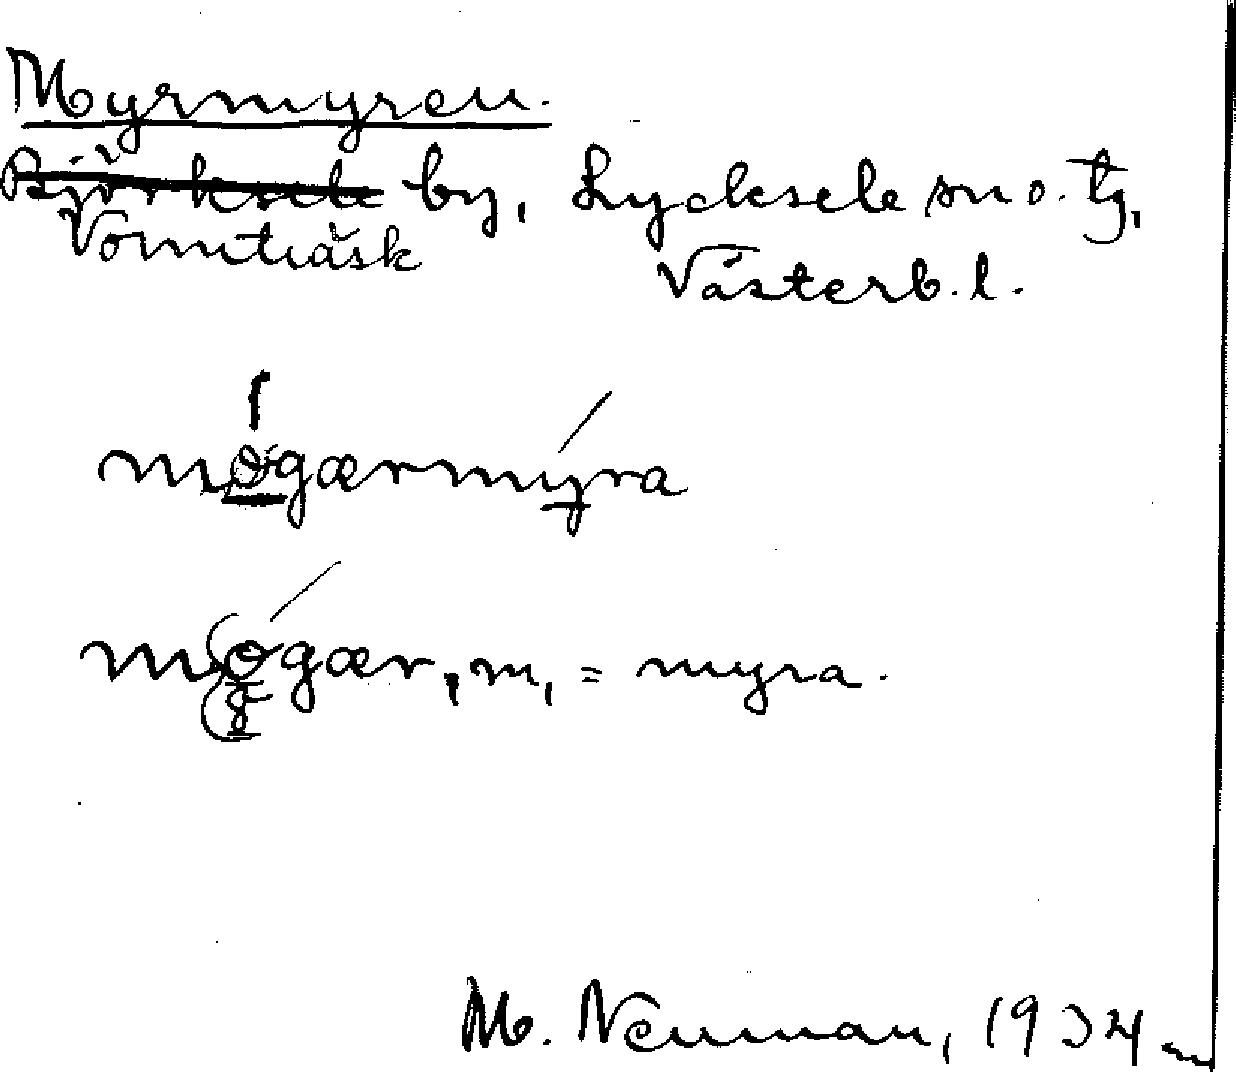 Myrmyren.
Björksele by, Lycksele sn o. tg,
Vormträsk
Västerb. l.
møgærmyra
møgær, m, = myra.
M. Neuman, 1934